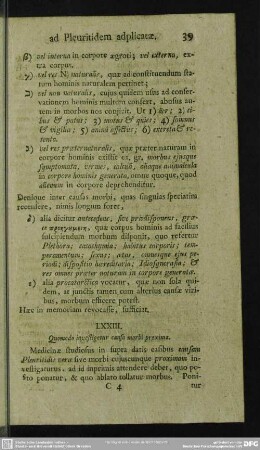 ad Pleuritidem adplicatæ. 39
β) vel interna in corpore ægroti; vel externa, ex-
tra corpus.
γ) vel res N) naturalis, quæ ad constituendum sta-
tum hominis naturalem pertinet;
vel non naturalis, cujus quidem usus ad conser-
vationem hominis multum confert, abusus au-
tem in morbos nos conjicit. Ut 1) aër; 2) ci-
bus & potus; 3) motus & quies; 4) somnus
& vigilia; 5) animi affectus; 6) excreta & re-
tenta.
vel res præternaturalis, quæ præter naturam in
corpore hominis existit ex. gr. morbus ejusque
symptomata, calculi, aliaque animalcula
in corpore hominis generata, omne quoque, quod
alienum in corpore deprehenditur.
Denique inter causas morbi, quas singulas speciatim
recensere, nimis longum foret,
δ) alia dicitur antecedens, sive prædisponens, græ-
ce προηγουμενη, quæ corpus hominis ad facilius
suscipiendum morbum disponit, quo refertur
Plethora; cacochymia; habitus corporis; tem-
peramentum; sexus; ætas, ejus pe-
riodi; dispositio hereditaria; Idiosyncrasia; &
res omnes præter naturam in corpore generatæ.
alia procatarctica vocatur, quæ non sola qui-
dem, at junctis tamen cum alterius causæ viri-
bus, morbum efficere potest.
Hæc in memoriam revocasse, sufficiat.
LXXIII.
Quomodo investigetur causa morbi proxima.
Medicinæ studiosus in supra datis casibus causam
Pleuritidis veræ sive morbi cujuscunque proximam in-
vestigaturus, ad id inprimis attendere debet, quo po-
sito ponatur, & quo ablato tollatur morbus. Poni-
C 4 tur